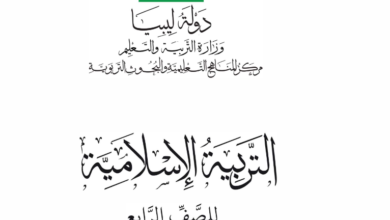 دولة ليبيا
وزارة التربية والتعليم
مركز المناهج التعليمية والبحوث التربوية
التربية الإسلامية
للصف الرابع